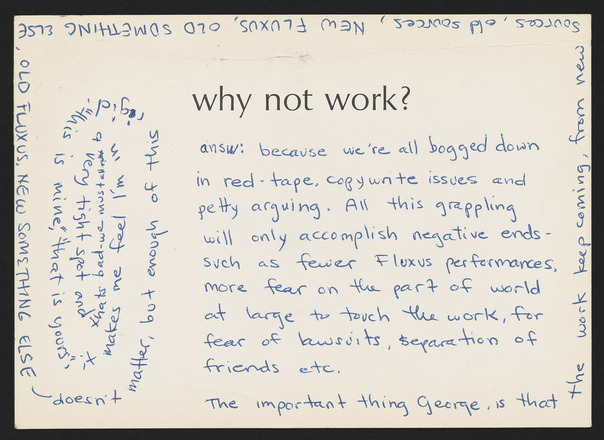 why not work?
answ: because we're all bogged down
in red-tape, copywrite issues and
petty arguing. All this grappling
will only accomplish negative ends-
such as fewer Fluxus performances,
more fear on the part of world
at large to touch the work, for
fear of lawsuits, separation of
friends etc.
The important thing George, is that
the work keep coming, from new
sources, old sources, NEW FLUXUS, OLD SOMETHING ELSE
, OLD FLUXUS, NEW SOMETHING ELSE
doesn't
matter, but enough of this
"this is mine," "that is yours",
makes me feel I'm in
a very tight spot and
thats bad-we must